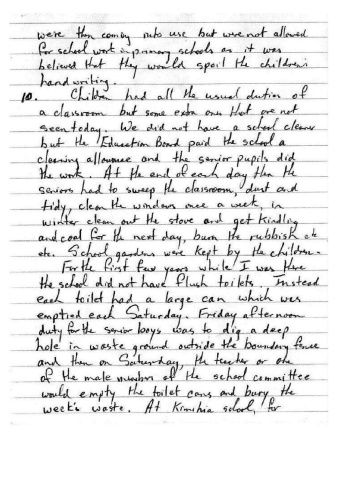 were then coming into use but were not allowed
for school work in primary schools as it was
believed that they would spoil the children's
handwriting.
10. Children had all the usual duties of
a classroom but some extra ones that are not
seen today. We did not have a school cleaner
but the Education Board paid the school a
cleaning allowance and the senior pupils did
the work. At the end of each day then the
seniors had to sweep the classroom, dust and
tidy, clean the windows once a week, in
winter clean out the stove and get kindling
and coal for the next day, burn the rubbish etc
etc. School gardens were kept by the children.
For the first few years while I was there
the school did not have flush toilets. Instead
each toilet had a large can which was
emptied each Saturday. Friday afternoon
duty for the senior boys was to dig a deep
hole in waste ground outside the boundary fence
and then on Saturday, the teacher or one
of the male members of the school committee
would empty the toilet cans and bury the
week's waste. At Kimihia school, for